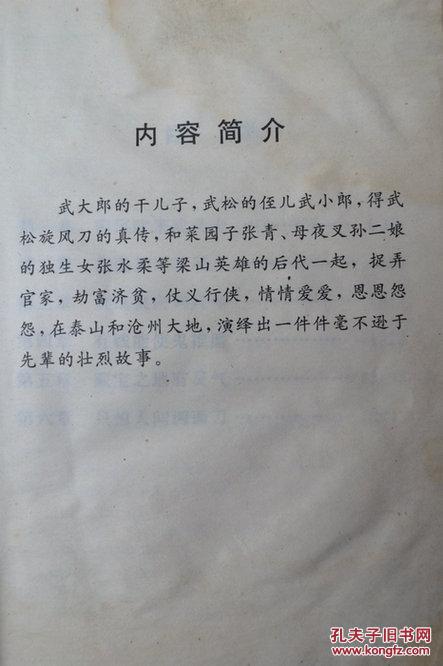 内容简介
武大郎的干儿子，武松的侄儿武小郎，得武
松旋风刀的真传，和菜园子张青、母夜叉孙二娘
的独生女张水柔等梁山英雄的后代一起，捉弄
官家，劫富济贫，仗义行侠，情情爱爱，恩恩怨
怨，在泰山和沧州大地，演绎出一件件毫不逊于
先辈的壮烈故事。
孔夫子旧书网
www.kongfz.com